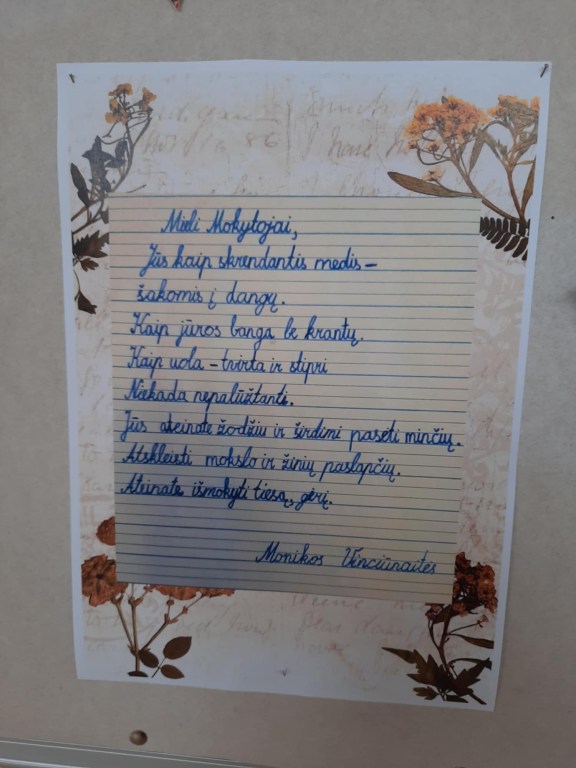 Mieli Mokytojai,
Jūs kaip skrendantis medis –
šakomis į dangų.
Kaip jūros banga be krantų.
Kaip uola – tvirta ir stipri
Niekada nepalūžtanti.
Jūs ateinate žodžiu ir širdimi pasėti minčių.
Atskleisti mokslo ir žinių paslapčių.
Ateinate išmokyti tiesą, gėrį.
Monikos Vinciūnaitės